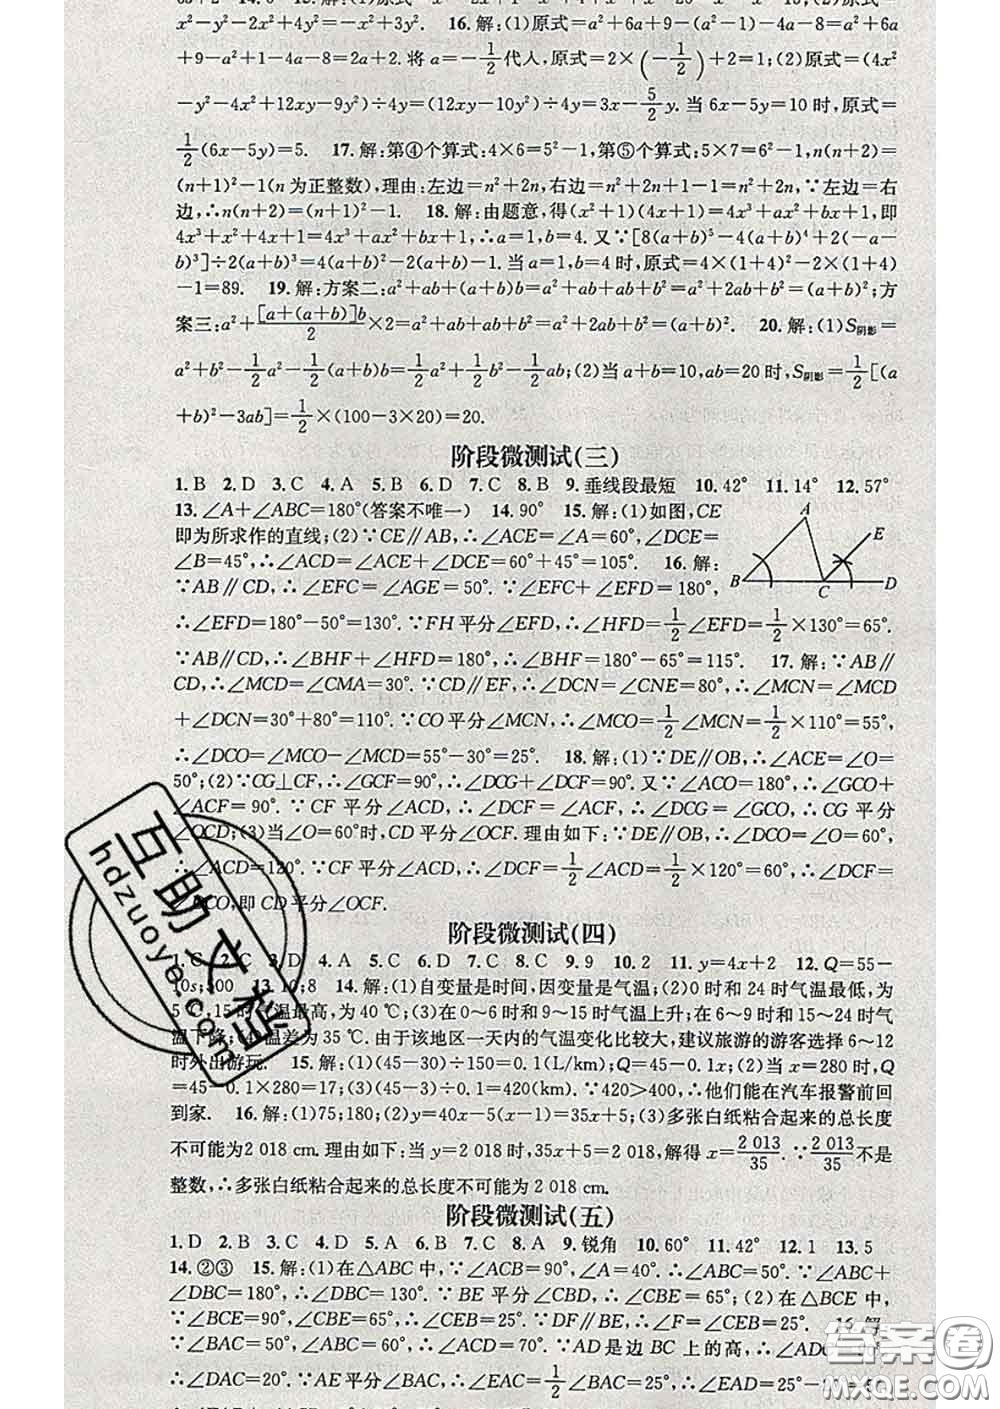 -y²-2x²+4y²=-x²+3y². 16. 解:(1)原式=a²+6a+9-(a²-1)-4a-8=a²+6a
+9-a²+1-4a-8=2a+2. 将 a=-1/2代人,原式=2×(-1/2)+2=1;(2)原式=(4x²
-y²-4x²+12xy-9y²)÷4y=(12xy-10y²)÷4y=3x-5/2y. 当 6x-5y=10 时,原式=
1/2(6x-5y)=5. 17. 解:第④个算式:4×6=5²-1,第⑤个算式:5×7=6²-1,n(n+2)=
(n+1)²-1(n 为正整数),理由:左边=n²+2n,右边=n²+2n+1-1=n²+2n,∵左边=右
边,∴n(n+2)=(n+1)²-1. 18. 解:由题意,得(x²+1)(4x+1)=4x³+ax²+bx+1,即
4x³+x²+4x+1=4x³+ax²+bx+1,∴a=1,b=4. 又∵[8(a+b)⁵-4(a+b)⁴+2(-a-
b)³]÷2(a+b)³=4(a+b)²-2(a+b)-1. 当 a=1,b=4 时,原式=4×(1+4)²-2×(1+4)
-1=89. 19. 解:方案二:a²+ab+(a+b)b=a²+ab+ab+b²=a²+2ab+b²=(a+b)²;方
案三:a²+[a+(a+b)]b/2×2=a²+ab+ab+b²=a²+2ab+b²=(a+b)². 20. 解:(1)S阴影=
a²+b²-1/2a²-1/2(a+b)b=1/2a²+1/2b²-1/2ab;(2)当 a+b=10,ab=20 时,S阴影=1/2[(a
+b)²-3ab]=1/2×(100-3×20)=20.
阶段微测试(三)
1. B 2. D 3. C 4. A 5. B 6. D 7. C 8. B 9. 垂线段最短 10. 42° 11. 14° 12. 57°
13. ∠A+∠ABC=180°(答案不唯一) 14. 90° 15. 解:(1)如图,CE
即为所求作的直线;(2)∵CE∥AB,∴∠ACE=∠A=60°,∠DCE=
∠B=45°,∴∠ACD=∠ACE+∠DCE=60°+45°=105°. 16. 解:
∵AB∥CD,∴∠EFC=∠AGE=50°. ∵∠EFC+∠EFD=180°,
A E B C D
∴∠EFD=180°-50°=130°. ∵FH 平分∠EFD,∴∠HFD=1/2∠EFD=1/2×130°=65°.
∵AB∥CD,∴∠BHF+∠HFD=180°,∴∠BHF=180°-65°=115°. 17. 解:∵AB∥
CD,∴∠MCD=∠CMA=30°. ∵CD∥EF,∴∠DCN=∠CNE=80°,∴∠MCN=∠MCD
+∠DCN=30°+80°=110°. ∵CO 平分∠MCN,∴∠MCO=1/2∠MCN=1/2×110°=55°,
∴∠DCO=∠MCO-∠MCD=55°-30°=25°. 18. 解:(1)∵DE∥OB,∴∠ACE=∠O=
50°;(2)∵CG⊥CF,∴∠GCF=90°,∴∠DCG+∠DCF=90°. 又∵∠ACO=180°,∴∠GCO+
∠ACF=90°. ∵CF 平分∠ACD,∴∠ACF=∠DCF,∴∠DCG=∠GCO,∴CG 平分
∠OCD;(3)当∠O=60°时,CD 平分∠OCF. 理由如下:∵DE∥OB,∴∠DCO=∠O=60°,
∴∠ACD=120°. ∵CF 平分∠ACD,∴∠DCF=1/2∠ACD=1/2×120°=60°,∴∠DCF=
CO,即 CD 平分∠OCF.
阶段微测试(四)
1. C 2. C 3. D 4. A 5. C 6. D 7. C 8. C 9. 9 10. 2 11. y=4x+2 12. Q=55-
10s;300 13. 10;8 14. 解:(1)自变量是时间,因变量是气温;(2)0 时和 24 时气温最低,为
5 ℃,15 时气温最高,为 40 ℃;(3)在 0~6 时和 9~15 时气温上升;在 6~9 时和 15~24 时气
温下降;(4)温差为 35 ℃. 由于该地区一天内的气温变化比较大,建议旅游的游客选择 6~12
时外出游玩. 15. 解:(1)(45-30)÷150=0.1(L/km);Q=45-0.1x;(2)当 x=280 时,Q
=45-0.1×280=17;(3)(45-3)÷0.1=420(km). ∵420>400,∴他们能在汽车报警前回
到家. 16. 解:(1)75;180;(2)y=40x-5(x-1)=35x+5;(3)多张白纸粘合起来的总长度
不可能为2 018 cm. 理由如下:当 y=2 018 时,35x+5=2 018,解得 x=2 013/35. ∵2 013/35不是
整数,∴多张白纸粘合起来的总长度不可能为 2 018 cm.
阶段微测试(五)
1. D 2. B 3. C 4. D 5. A 6. B 7. C 8. A 9. 锐角 10. 60° 11. 42° 12. 1 13. 5
14. ②③ 15. 解:(1)在△ABC 中,∵∠ACB=90°,∠A=40°,∴∠ABC=50°. ∵∠ABC+
∠DBC=180°,∴∠DBC=130°. ∵BE 平分∠CBD,∴∠CBE=65°;(2)在△BCE 中,
∵∠BCE=90°,∠CBE=65°,∴∠CEB=25°. ∵DF∥BE,∴∠F=∠CEB=25°. 16. 解
∵∠BAC=50°,∠ABC=60°,∴∠ACD=70°. ∵AD是边 BC 上的高,∴∠ADC=90°
∴∠DAC=20°. ∵AE平分∠BAC,∴∠EAC=1/2∠BAC=25°,∴∠EAD=25°-
互助文档
hdzuoye.com
答案圈
MXQE.COM